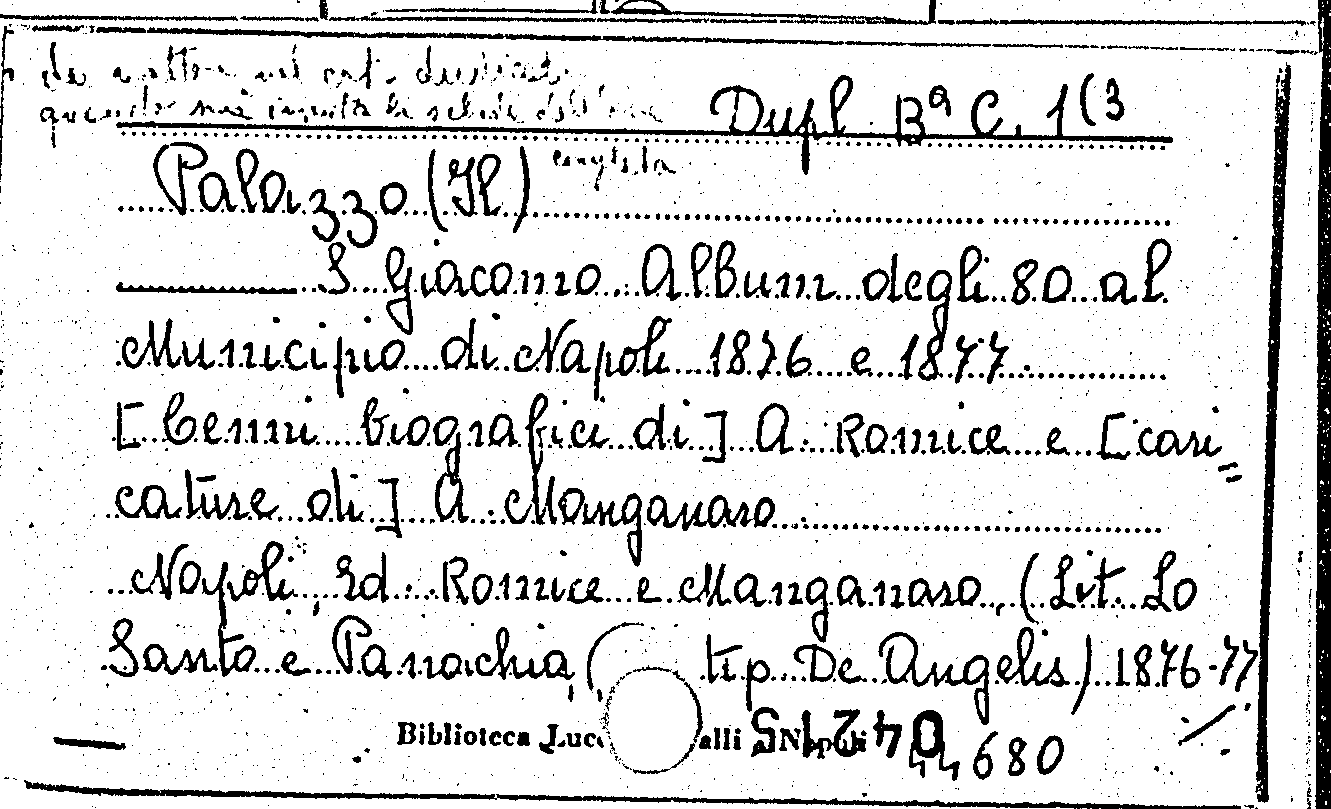 Dupl. Bª C. 1(3
Palazzo (Il)
S. Giacomo. Album degli 80 al
Municipio di Napoli 1876 e 1877.
[Cenni biografici di] A. Romice e [cari=
cature di] A. Manganaro
Napoli, Ed. Romice e Manganaro, (Lit. Lo
Santo e Panachia, ( tip. De Angelis) 1876-77
Biblioteca Luc alli
680